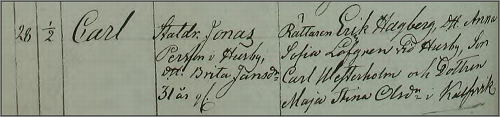 28 1/2 Carl Staldr. Jonas Rättaren Erik Hagberg, H. Anna
Persson i Husby, Sofia Löfgren vid Husby, Son
H. Brita Jansdr Carl Westerholm och Dottren
31 år Maja Stina Olsdr i Kalfvik